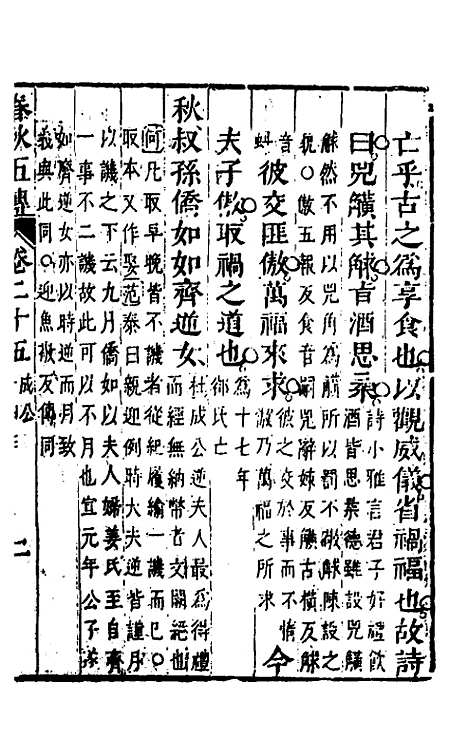 亡乎古之為享食也以觀威儀省禍福也故詩
曰兕觵其觩旨酒思柔
詩小雅言君子好禮飲
酒皆思柔德雖設兕觵
觩然不用以兕角為觵所以罰不敬觩陳設之
貌○傲五報反食音嗣兕辭姊反觵古橫反觩
音
蚪
彼交匪傲萬福來求
彼之交於事而不惰
傲乃萬福之所求
今
夫子傲取禍之道也
為十七年
郤氏亡
秋叔孫僑如如齊逆女
杜成公逆夫人最為得禮
而經無納幣者文闕絕也
何凡取早晚皆不譏者從紀履緰一譏而已○
取本又作娶范泰曰親迎例時大夫逆皆謹月
以譏之下云九月僑如以夫人婦姜氏至自齊
一事不二譏故此可以不月也宜元年公子遂
如齊逆女亦以時逆而月致
義與此同○迎魚敬反傳同
春秋五傳 卷二十五 成公